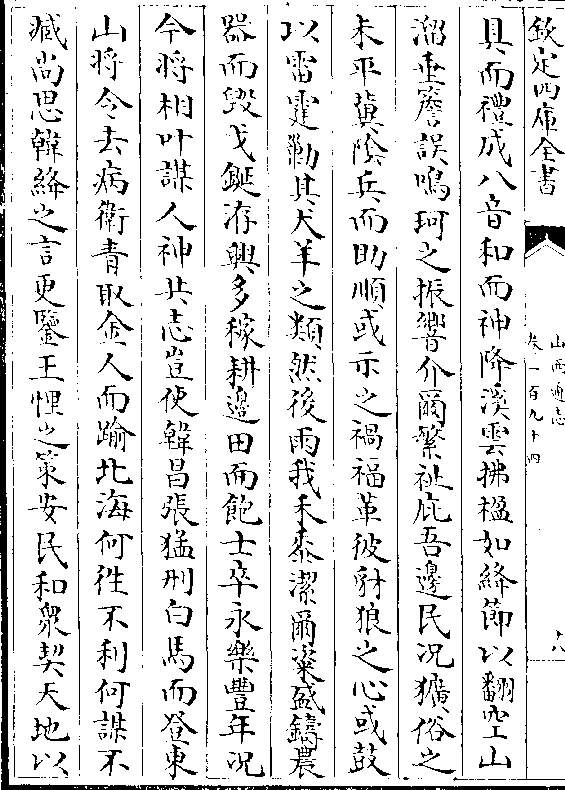 欽定四庫全書
山西通志
卷一百九十四
十八
具而禮成八音和而神降溪雲拂楹如絳節以翻空山
溜垂簷誤鳴珂之振響介爾繁祉庇吾邊民况獷俗之
未平冀陰兵而助順或示之禍福革彼豺狼之心或鼓
以雷霆勦其犬羊之類然後雨我禾黍潔爾粢盛鑄農
器而毀戈鋋洊興多稼耕邊田而飽士卒永樂豐年况
今將相叶謀人神共志豈使韓昌張猛刑白馬而登東
山將令去病衛青取金人而踰北海何徃不利何謀不
臧尚思韓絳之言更鑒王恢之策安民和衆契天地以